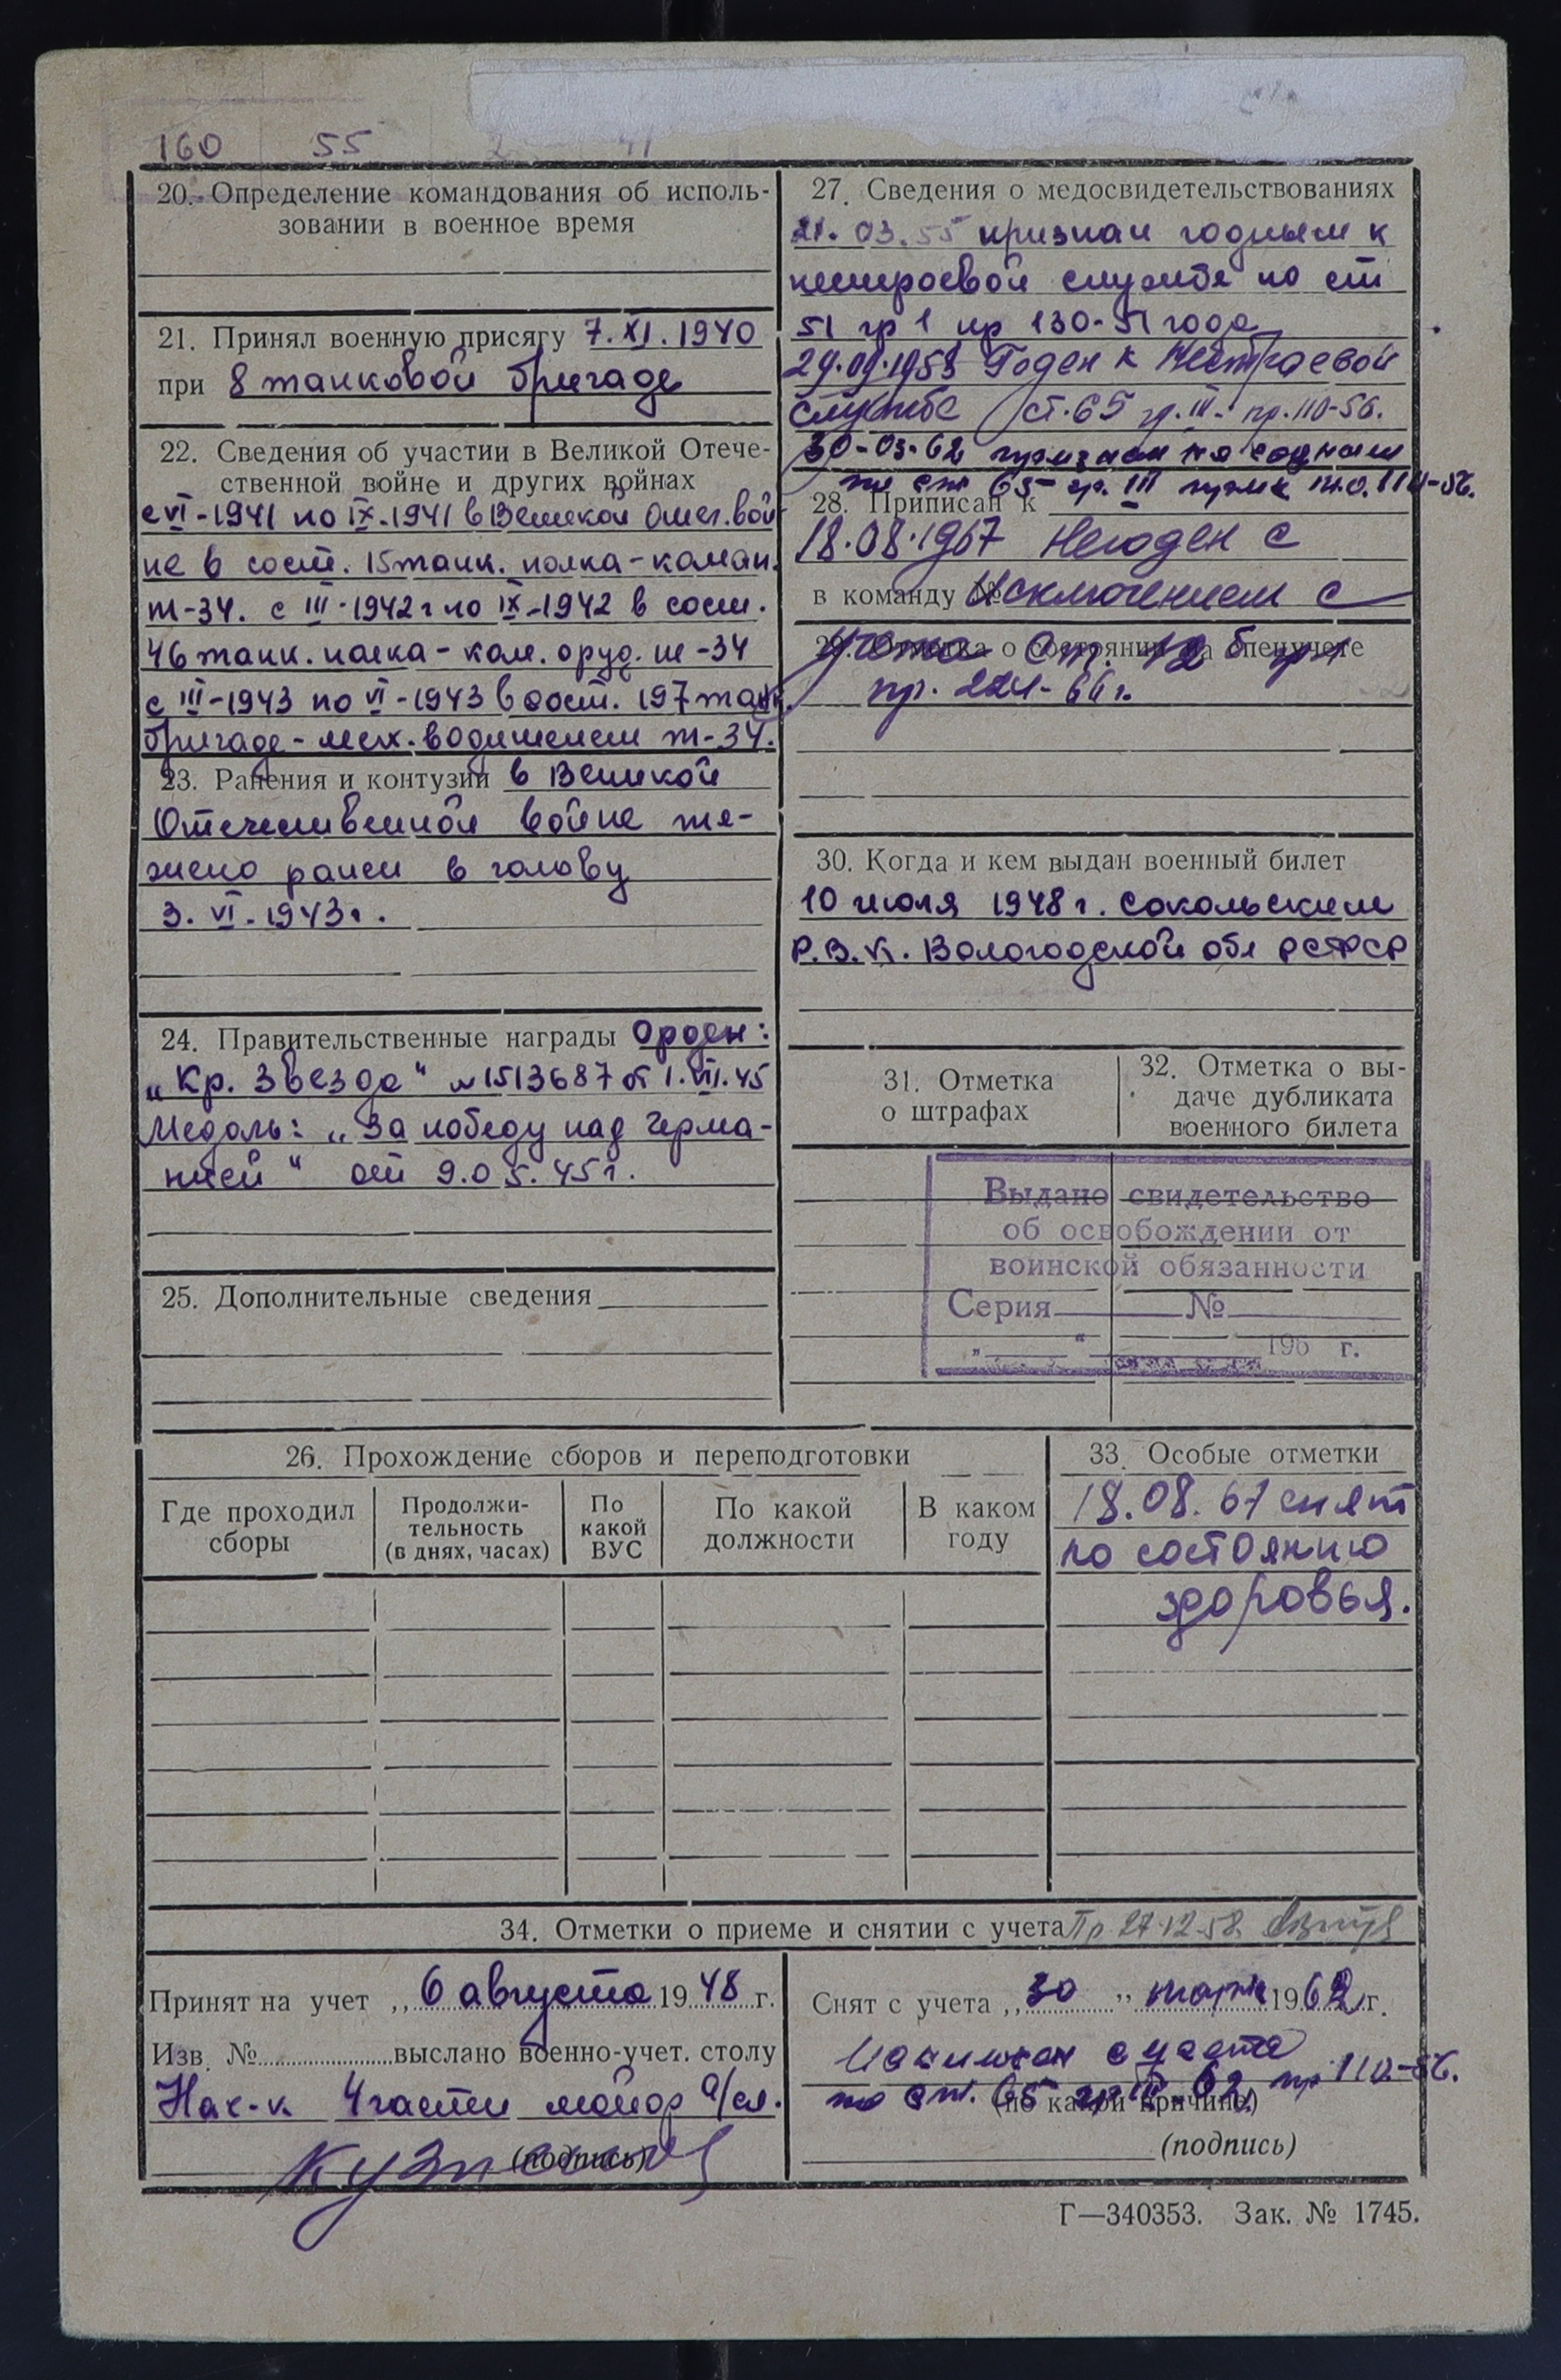 160 55
20. Определение командования об исполь-
зовании в военное время
21. Принял военную присягу 7.XI.1940
при 8 танковой бригаде
22. Сведения об участии в Великой Отече-
ственной войне и других войнах
с VI-1941 по IX.1941 в Великой Отеч. вой-
не в сост. 15 танк. полка - коман.
т-34. с III-1942 г по IX-1942 в сост.
46 танк. полка - ком. оруд. т-34
с III-1943 по VI-1943 в сост. 197 танк.
бригаде - мех. водителем т-34.
23. Ранения и контузии в Великой
Отечественной войне тя-
жело ранен в голову
3. VI-1943 г.
24. Правительственные награды Орден:
„Кр. Звезда" № 1513687 от 1.VII.45
Медаль: „За победу над Герма-
нией" от 9.05.45 г.
25. Дополнительные сведения
27. Сведения о медосвидетельствованиях
21.03.55 признан годным к
нестроевой службе по ст
51 гр 1 пр 130-51 года
29.09.1958 Годен к нестроевой
службе ст. 65 гр. III пр. 110-56.
30-03-62 признан не годным
по ст 65 гр. III
28. Приписан к
18.08.1967 Негоден с
в команду № исключением с
29. Отметка о состоянии на спецучете
учета ст. 12 б
пр. 224-66 г.
30. Когда и кем выдан военный билет
10 июля 1948 г. Сокольским
Р.В.К. Вологодской обл РСФСР
31. Отметка
о штрафах
32. Отметка о вы-
даче дубликата
военного билета
Выдано свидетельство
об освобождении от
воинской обязанности
Серия №
„ “ 196 г.
26. Прохождение сборов и переподготовки
Где проходил
сборы
Продолжи-
тельность
(в днях, часах)
По
какой
ВУС
По какой
должности
В каком
году
33. Особые отметки
18.08.67 снят
по состоянию
здоровья.
34. Отметки о приеме и снятии с учета Пр 27.12.58.
Принят на учет „ 6 августа 1948 г.
Изв. № выслано военно-учет. столу
Нач-к 4 части майор а/сл.
(подпись)
Снят с учета „ 30 " марта 1962 г.
с учета
по ст. 65 гр III 62 пр 110-56.
(по какой причине)
(подпись)
Г—340353. Зак. № 1745.